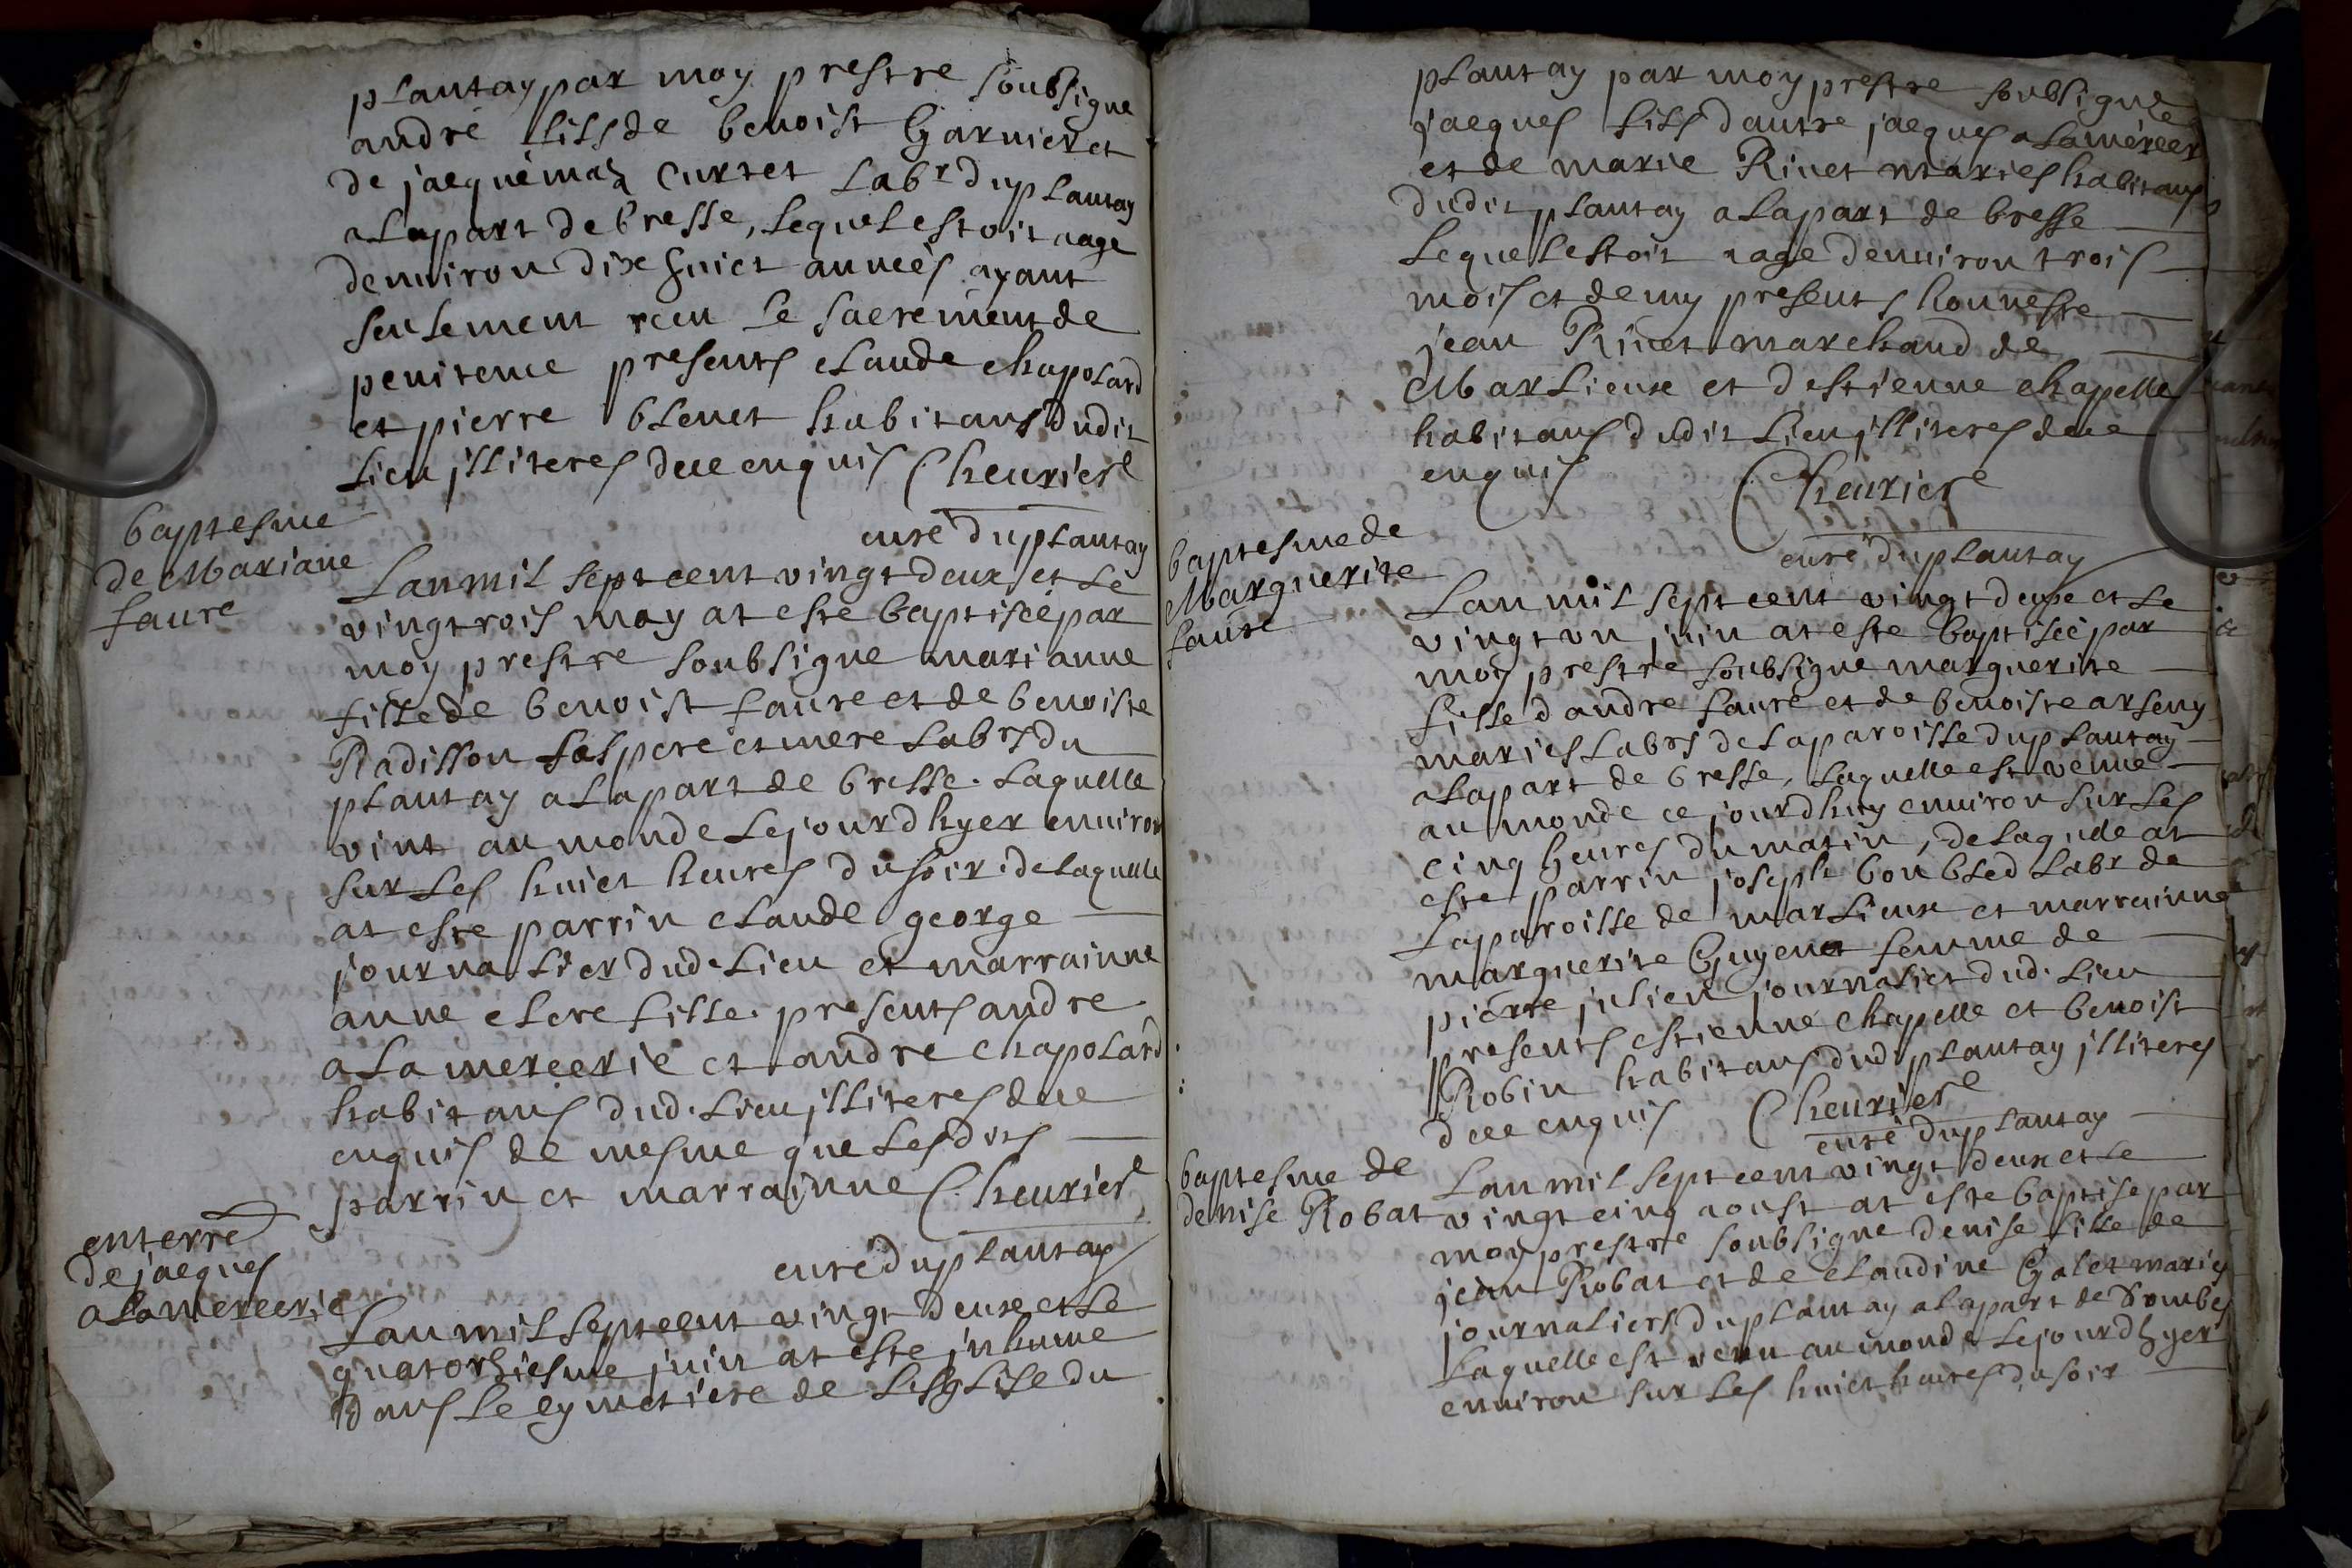 plantay par moy prestre soubsigne
andré fils de benoist Garnier et
de jacquemaz Curtet Labr du plantay
a la part de bresse, lequel estoit aage
denuiron dix huict années ayant
seulement receu le sacrement de
penitence presents claude chapolard
et pierre blenet habitans dudit
lieu jlliteres deue enquis Cheurier
curé du plantay
baptesme
de Mariane
faure
Lan mil sept cent vingt deux et le
vingtrois may at esté baptisée par
moy prestre soubsigne marianne
fille de benoist faure et de benoiste
Radisson ses pere et mere Labrs du
plantay a la part de bresse. Laquelle
vint au monde le jourdhyer enuiron
sur les huict heures du soir. de laquelle
at esté parrin claude george
journalier dud. lieu et marrainne
anne clere fille. presents andre
a la mercerie et andre chapolard
habitans dud. lieu jlliteres deue
enquis de mesme que lesdits
parrin et marrainne Cheurier
curé du plantay
enterre
de jacques
a la mercerie
Lan mil sept cent vingt deux et le
quatorziesme juin at este jnhume
dans le cymetiere de lesglise du
plantay par moy prestre soubsigné
jacques fils dautre jacques a la mercer
et de marie Riuet mariés habitans
dudit plantay a la part de bresse
Lequel estoit aagé denuiron trois
mois et demy presents honneste
jean Riuet marchand de
Marlieux et destienne chapelle
habitans dudit lieu jlliteres deue
enquis Cheurier
curé du plantay
baptesme de
Marguerite
faure
Lan mil sept cent vingt deux et le
vingt un juin at este baptisée par
moy prestre soubsigne marguerite
fille dandre faure et de benoiste arseny
mariés Labrs de la paroisse du plantay
a la part de bresse, laquelle est venue
au monde ce jourdhuy enuiron sur les
cinq heures du matin, de laquelle at
este parrin joseph boubled Labr de
la paroisse de marlieux et marrainne
marguerite Guyenet femme de
pierre julien journalier dud. lieu
presents estienne chapelle et benoist
Robin habitans dud plantay jlliteres
deue enquis Cheurier
curé du plantay
baptesme de
denise Robat
Lan mil sept cent vingt deux et le
vingt cinq aoust at este baptise par
moy prestre soubsigne denise fille de
jean Robat et de claudine Galet mariés
journaliers du plantay a la part de dombes
Laquelle est venu au monde le jourdhyer
enuiron sur les huict heures du soir